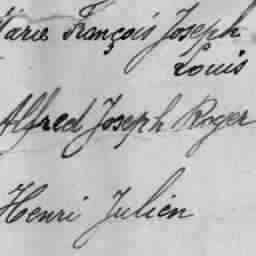 Marie François Joseph
Louis
Alfred Joseph Roger
Henri Julien